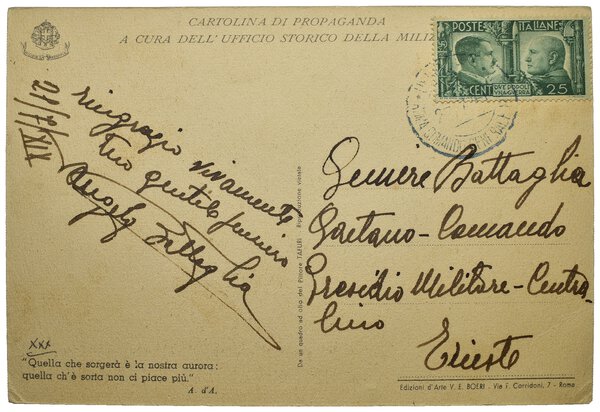 CARTOLINA DI PROPAGANDA
A CURA DELL'UFFICIO STORICO DELLA MILIZ
POSTE ITALIANE
CENT 25
DUE POPOLI
UNA GUERRA
21/7/XIX
ringrazio vivamente
tuo gentile pensiero
Angelo Battaglia
Geniere Battaglia
Gaetano - Comando
Presidio Militare - Centra-
lino
Trieste
"Quella che sorgerà è la nostra aurora:
quella ch'è sorta non ci piace più."
A. d'A.
Da un quadro ad olio del Pittore TAFURI Riproduzione vietata
Edizioni d'Arte V. E. BOERI - Via T. Corridoni, 7 - Roma